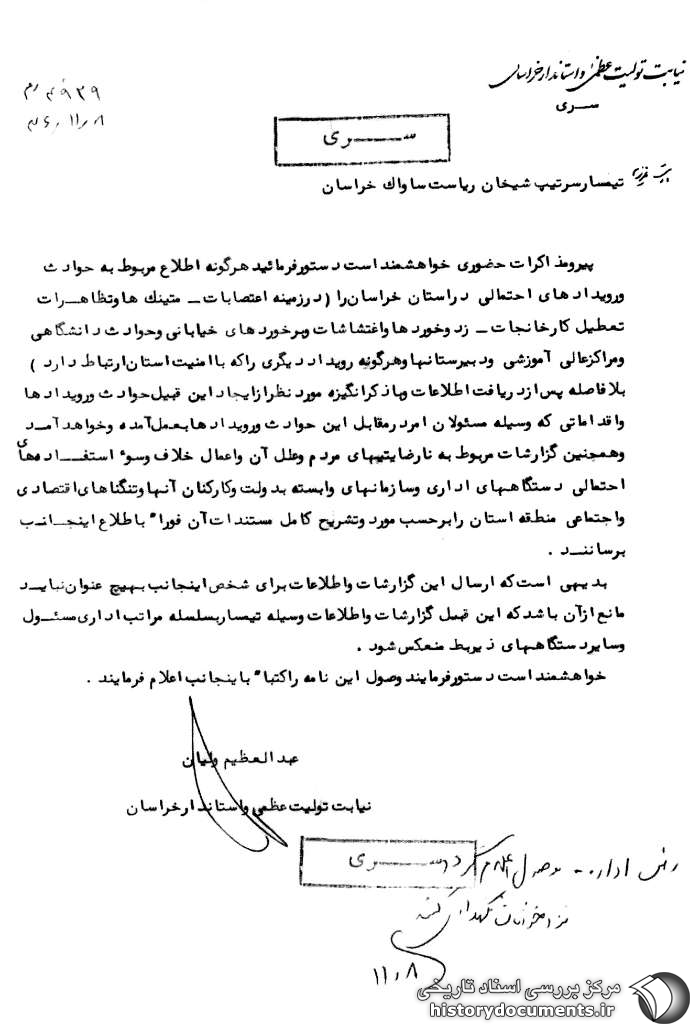 نیابت تولیت عظمیٰ و استاندار خراسان
سـری
۴۹۳۹
۱۱٫۸
ســـری
تیمسار سرتیپ شیخان ریاست ساواک خراسان
پیرومذاکرات حضوری خواهشمند است دستورفرمائید هرگونه اطلاع مربوط به حوادث
ورویدادهای احتمالی دراستان خراسان را (درزمینه اعتصابات ـ متینک هاوتظاهـرات
تعطیل کارخانجات ـ زدوخوردهاواغتشاشات وبرخوردهای خیابانی وحوادث دانشگاهی
ومراکزعالی آموزشی ودبیرستانهاوهرگونه رویداددیگری راکه باامنیت استان ارتباط دارد )
بلافاصله پس ازدریافت اطلاعات وباذکرانگیزه موردنظرازایجاداین قبیل حوادث ورویدادها
واقداماتی که وسیله مسئولان امردرمقابل این حوادث ورویدادهابعمل آمده وخواهدآمـد
وهمچنین گزارشات مربوط به نارضایتیهای مردم وعلل آن واعمال خلاف وسوء استفـاده های
احتمالی دستگاههای اداری وسازمانهای وابسته بدولت وکارکنان آنهاوتنگناهای اقتصادی
واجتماعی منطقه استان رابرحسب موردوتشریح کامل مستندات آن فوراً باطلاع اینجـانـب
برساننـد .
بدیهی است که ارسال این گزارشات واطلاعات برای شخص اینجانب بهیچ عنوان نبایـد
مانع ازآن باشدکه این قبیل گزارشات واطلاعات وسیله تیمساربسلسله مراتب اداری مسئـول
وسایردستگاههای ذیربط منعکس شود .
خواهشمند است دستورفرمایند وصول این نامه راکتباً باینجانب اعلام فرمایند .
عبدالعظیم ولیان
نیابت تولیت عظمی واستاندارخراسان
ســـری
۱۱٫۸
مرکز بررسی اسناد تاریخی
historydocuments.ir